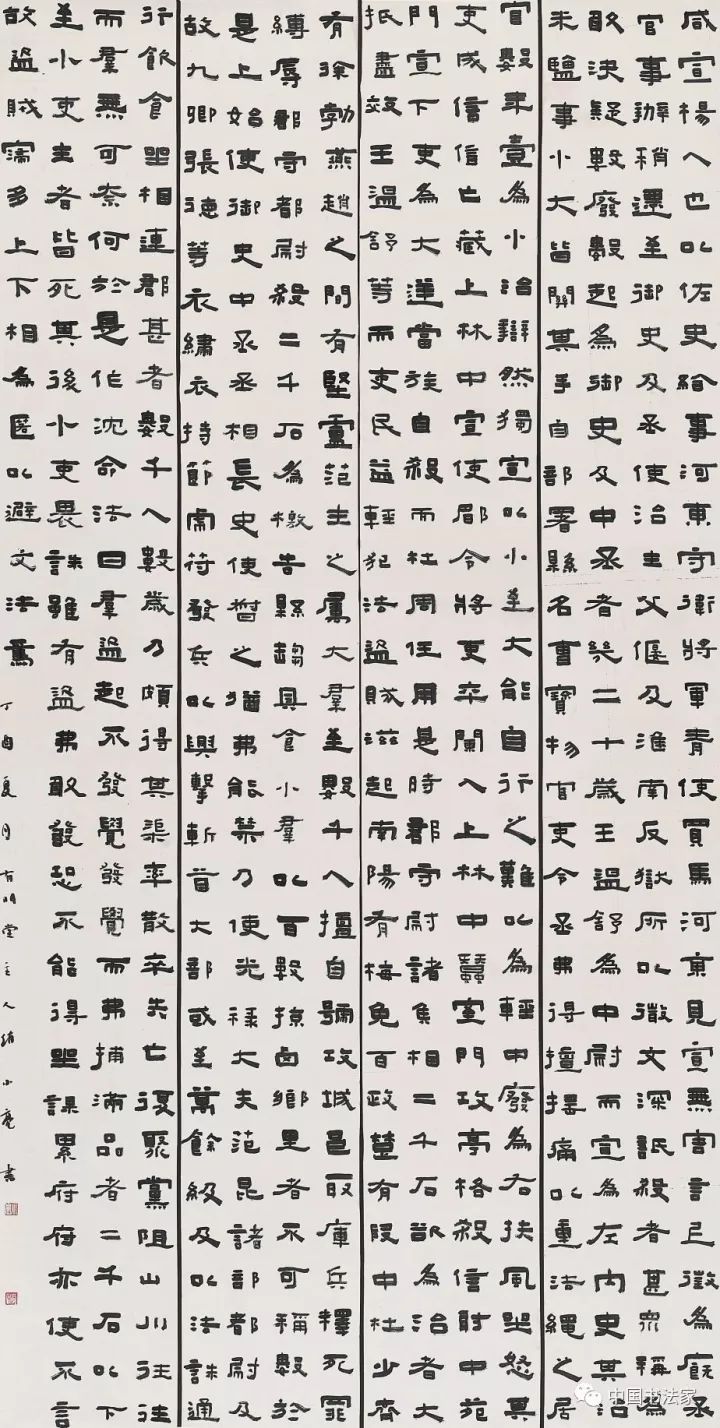 咸宣楊人也以佐史給事河東守衛將軍青使買馬河東見宣無害言上徵為廄丞
官事辦稍遷至御史及丞使治主父偃及淮南反獄所以微文深詆殺者甚衆稱為
敢決疑數廢數起為御史及中丞者幾二十歲王溫舒為中尉而宣為左內史其治
米鹽事小大皆關其手自部署縣名曹寶物官吏令丞弗得擅搖痛以重法繩之居
官數年壹為小治辯然獨宣以小至大能自行之難以為輕中廢為右扶風坐怒其
吏成信信亡藏上林中宣使郿令將吏卒闌入上林中蠶室門攻亭格殺信射中苑
門宣下吏為大逆當族自殺而杜周任用是時郡守尉諸侯相二千石欲為治者大
抵盡效王溫舒等而吏民益輕犯法盜賊滋起南陽有梅免百政楚有段中杜少齊
有徐勃燕趙之間有堅盧范主之屬大羣至數千人擅自號攻城邑取庫兵釋死罪
縛辱郡守都尉殺二千石為檄告縣趨具食小羣以百數掠鹵鄉里者不可稱數於
是上始使御史中丞丞相長史使督之猶弗能禁乃使光祿大夫范昆諸部都尉及
故九卿張德等衣繡衣持節虎符發兵以興擊斬首大部或至萬餘級及以法誅通
行飲食坐相連郡甚者數千人數歲乃頗得其渠率散卒失亡復聚黨阻山川往往
而羣無可奈何於是作沈命法曰羣盜起不發覺發覺而弗捕滿品者二千石以下
至小吏主者皆死其後小吏畏誅雖有盜弗敢發恐不能得坐課累府府亦使不言
故盜賊寖多上下相為匿以避文法焉
丁酉夏月 堂主人 小亮書
中国书法家